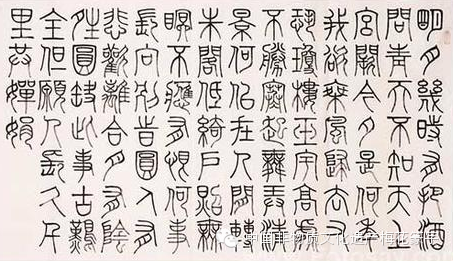 明月幾時有把酒
問青天不知天上
宮闕今夕是何年
我欲乘風歸去又
恐瓊樓玉宇高處
不勝寒起舞弄清
景何似在人間轉
朱閣低綺戶照無
眠不應有恨何事
長向別時圓人有
悲歡離合月有陰
晴圓缺此事古難
全但願人長久千
里共嬋娟
非物质文化遗产